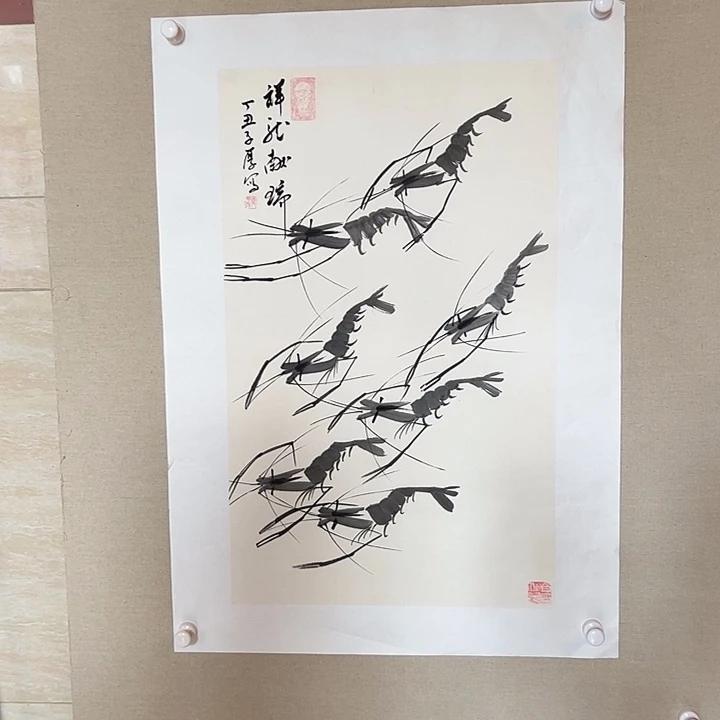 祥龙献瑞
丁丑子厚写